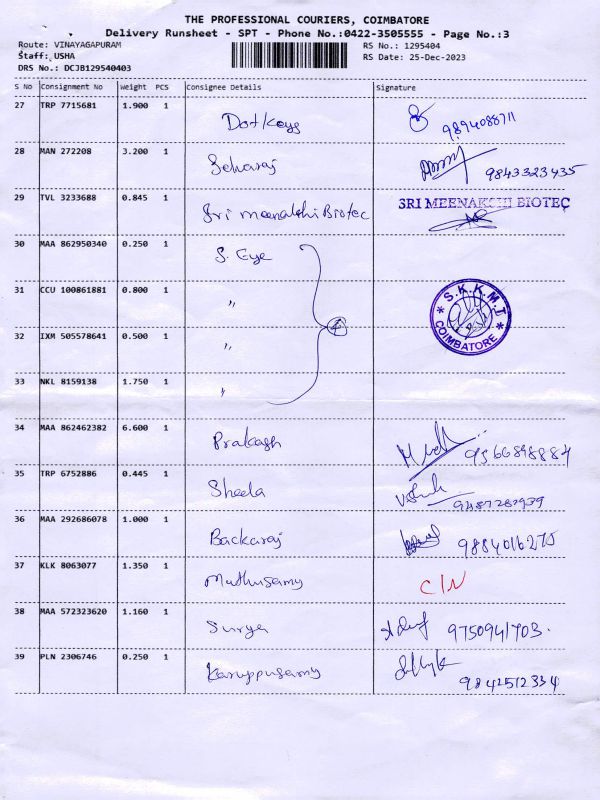 THE PROFESSIONAL COURIERS, COIMBATORE
Delivery Runsheet - SPT - Phone No.:0422-3505555 - Page No.:3
Route: VINAYAGAPURAM RS No.: 1295404
Staff: USHA RS Date: 25-Dec-2023
DRS No.: DCJB129540403
S No Consignment No Weight PCS Consignee Details Signature
27 TRP 7715681 1.900 1 Dotkeys 9894088711
28 MAN 272208 3.200 1 Selvaraj 9843323435
29 TVL 3233688 0.845 1 Sri meenakshi Biotec SRI MEENAKSHI BIOTEC
30 MAA 862950340 0.250 1 S. Eye
31 CCU 100861881 0.800 1 "
32 IXM 505578641 0.500 1 "
33 NKL 8159138 1.750 1 "
4
S.K.K.M.T
COIMBATORE
34 MAA 862462382 6.600 1 Prakash 9566898884
35 TRP 6752886 0.445 1 Sheela 9487282939
36 MAA 292686078 1.000 1 Backaraj 9884016275
37 KLK 8063077 1.350 1 Muthusamy C/N
38 MAA 572323620 1.160 1 Surya 9750941703.
39 PLN 2306746 0.250 1 Karuppusamy 9842512334